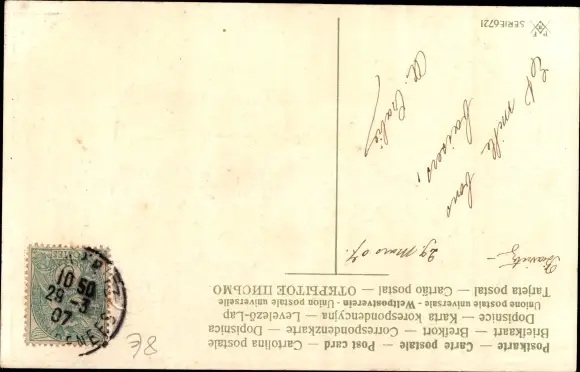 Postkarte — Carte postale — Post card — Cartolina postale
Briefkaart — Brefkort — Correspondenzkarte — Dopisnica
Dopisnice — Karta korespondencyjna — Levelező-Lap
Unione postale universale - Weltpostverein - Union postale universelle
Tarjeta postal — Cartão postal — ОТКРЫТОЕ ПИСЬМО
29 Mars 07.
Biarritz –
Et mille bons
baisers,
SERIE 6721
P F
10 50
29 - 3
07
8E